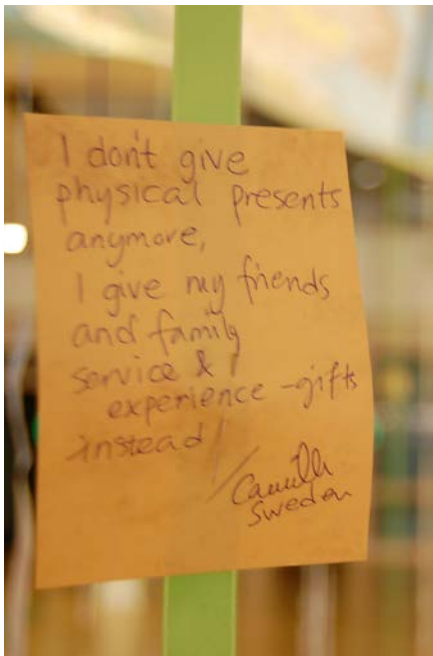 I don't give
physical presents
anymore,
I give my friends
and family
service &
experience -gifts
instead!
/Camilla
Sweden